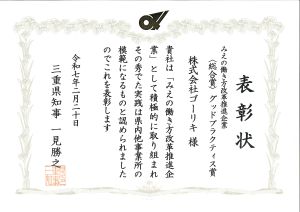 表彰状
みえの働き方改革推進企業
(総合賞)グッドプラクティス賞
株式会社ゴーリキ 様
貴社は「みえの働き方改革推進企
業」として積極的に取り組まれ
その秀でた実践は県内他事業所の
模範になるものと認められました
のでこれを表彰します
令和七年二月二十日
三重県知事 一見勝之